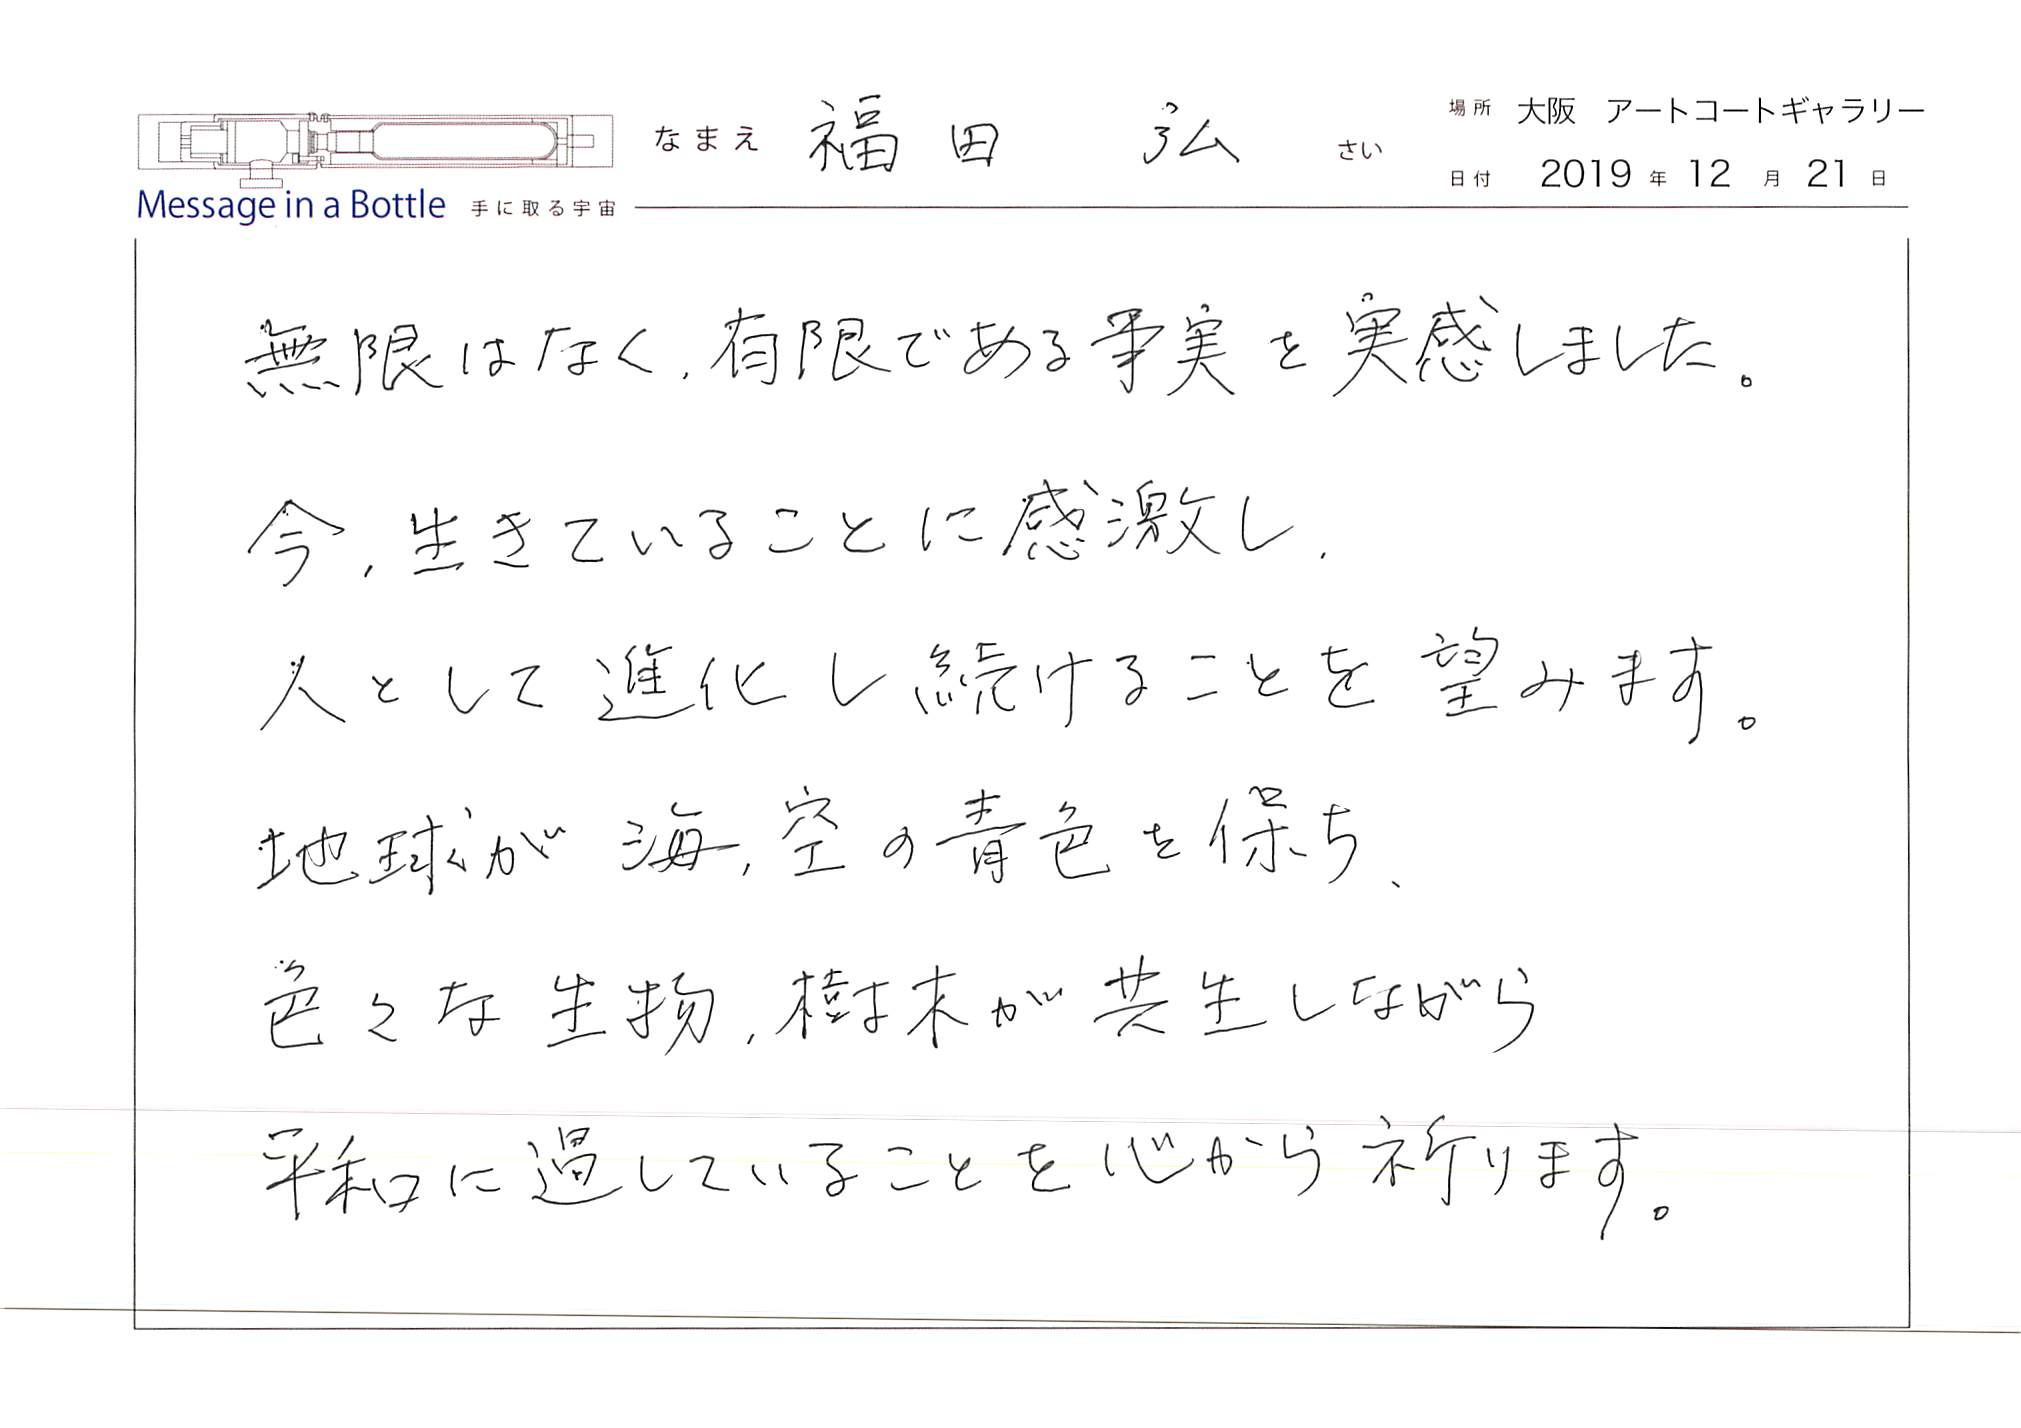 なまえ 福田 弘 さい
場所 大阪 アートコートギャラリー
日付 2019 年 12 月 21 日
Message in a Bottle 手に取る宇宙
無限はなく、有限である事実を実感しました。
今、生きていることに感激し、
人として進化し続けることを望みます。
地球が海、空の青色を保ち、
色々な生物、樹木が共生しながら
平和に過していることを心から祈ります。